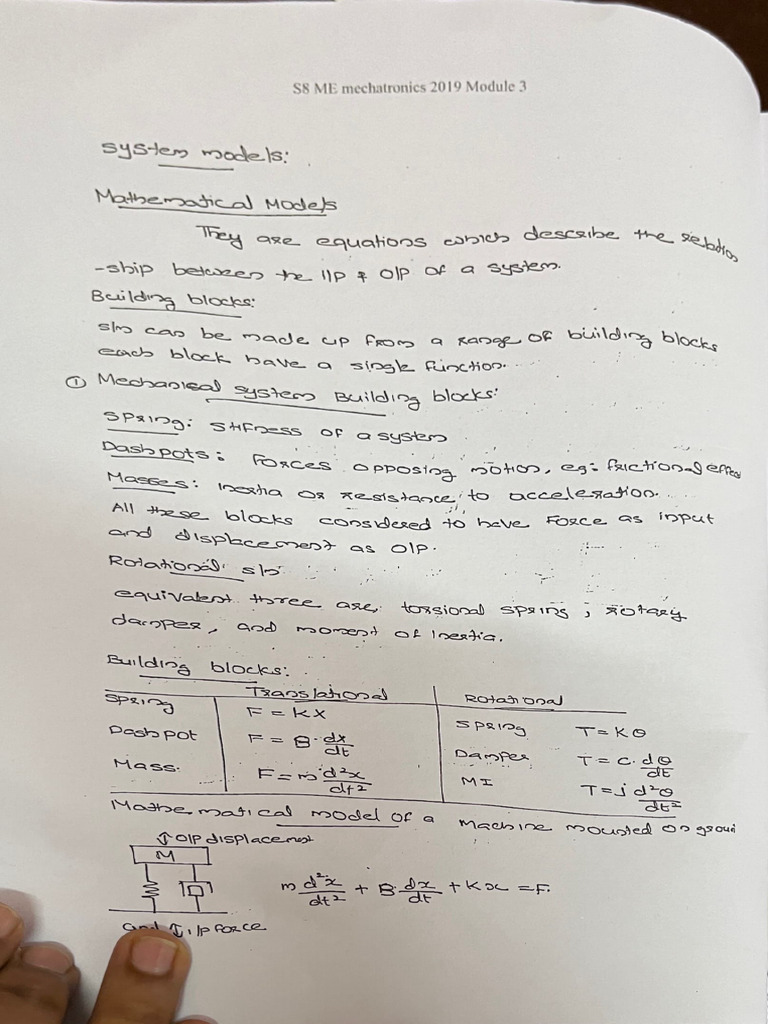 S8 ME mechatronics 2019 Module 3
System models:
Mathematical Models
They are equations which describe the relation
-ship between the I/P & O/P of a system.
Building blocks:
s/m can be made up from a range of building blocks
each block have a single function.
① Mechanical system Building blocks:
Spring: Stiffness of a system
Dashpots: Forces opposing motion, eg: frictional effect
Masses: Inertia or resistance to acceleration.
All these blocks considered to have Force as input
and displacement as O/P.
Rotational s/m
equivalent three are, torsional spring, rotary
damper, and moment of Inertia.
Building blocks:
Translational Rotational
Spring F = KX Spring T = Kθ
Dashpot F = B·dx/dt Damper T = c·dθ/dt
Mass. F = m d²x/dt² MI T = J d²θ/dt²
Mathematical model of a Machine mounted on groun
↕ O/P displacement
M
m d²x/dt² + B·dx/dt + Kx = F.
↕ I/P force